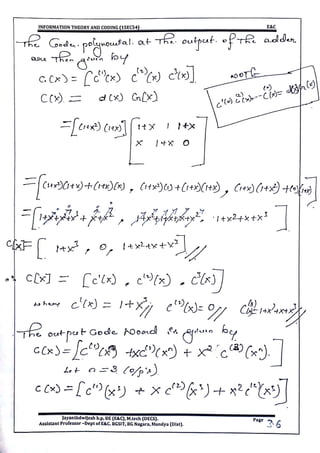 INFORMATION THEORY AND CODING (15EC54) E&C
The Code polynomial at The output of The adder
are Then given by
C(x) = [c⁽¹⁾(x) c⁽²⁾(x) c³(x)]
NOTE
C(x) = d(x) G(x)
= [(1+x²) (1+x)] [1+x 1 1+x
x 1+x 0]
= [(1+x²)(1+x)+(1+x)(x) , (1+x²)(1)+(1+x)(1+x) ,
1+x²+x+x³]
C[x] = [1+x³, 0, 1+x²+x+x³]//
C[x] = [c¹(x) , c⁽²⁾(x) , c³(x)]
where c¹(x) = 1+x³// c⁽²⁾(x) = 0// C⁽³⁾(x) = 1+x²+x+x³//
The output Code Word is given by
C(x) = [c⁽¹⁾(xⁿ) + x c⁽²⁾(xⁿ) + x² c⁽³⁾(xⁿ)]
Let n = 3 (o/p's)
C(x) = [c⁽¹⁾(x³) + x c⁽²⁾(x³) + x² c⁽³⁾(x³)]
Jayanthdwijesh h.p, BE (E&C), M.tech (DECS).
Assistant Professor –Dept of E&C. BGSIT, BG Nagara, Mandya (Dist).
Page 36